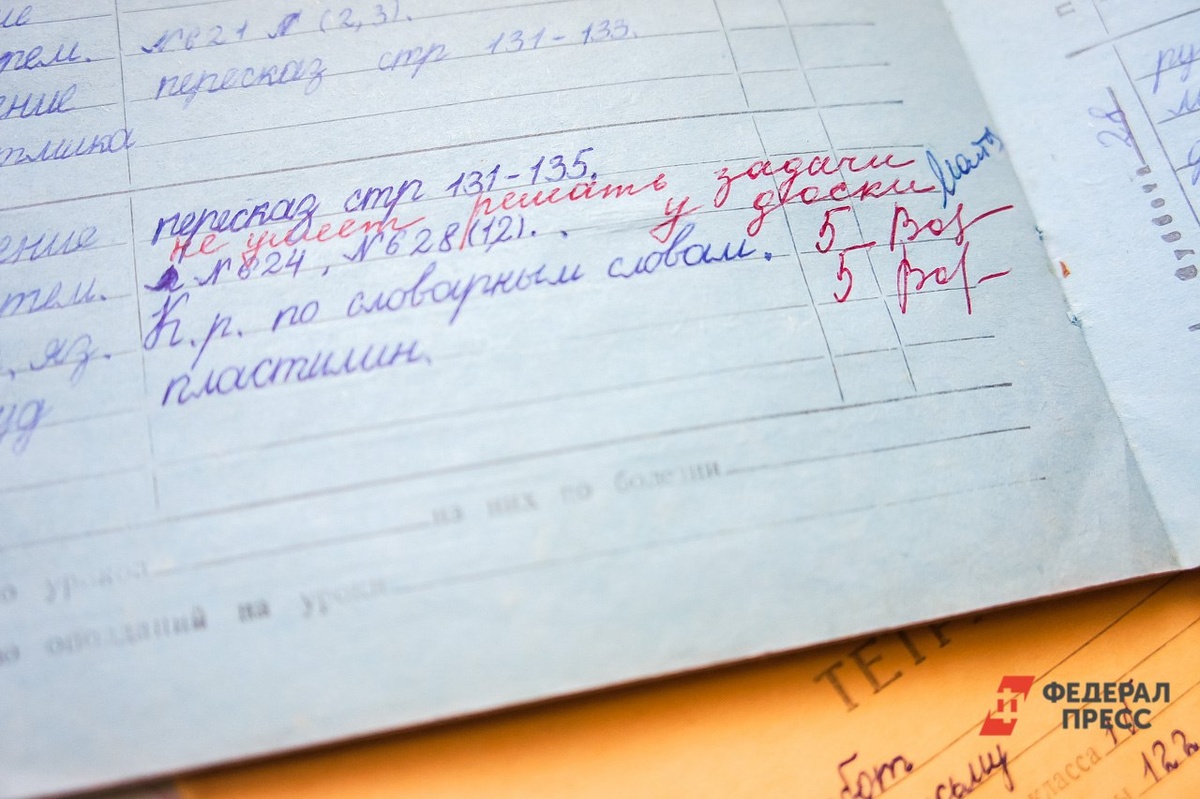 ие
тем. №621 № (2,3).
ение пересказ стр 131-133.
тлика
ение пересказ стр 131-135.
не умеет решать задачи
у доски
тем. №624, №628(12).
5
, яз. К.р. по словарным словам.
5
уд пластилин.
из них по болезни
о уроков
о опозданий на уроки
ру
ТЕТР
бот
сьму
класса
122
ФЕДЕРАЛ
ПРЕСС